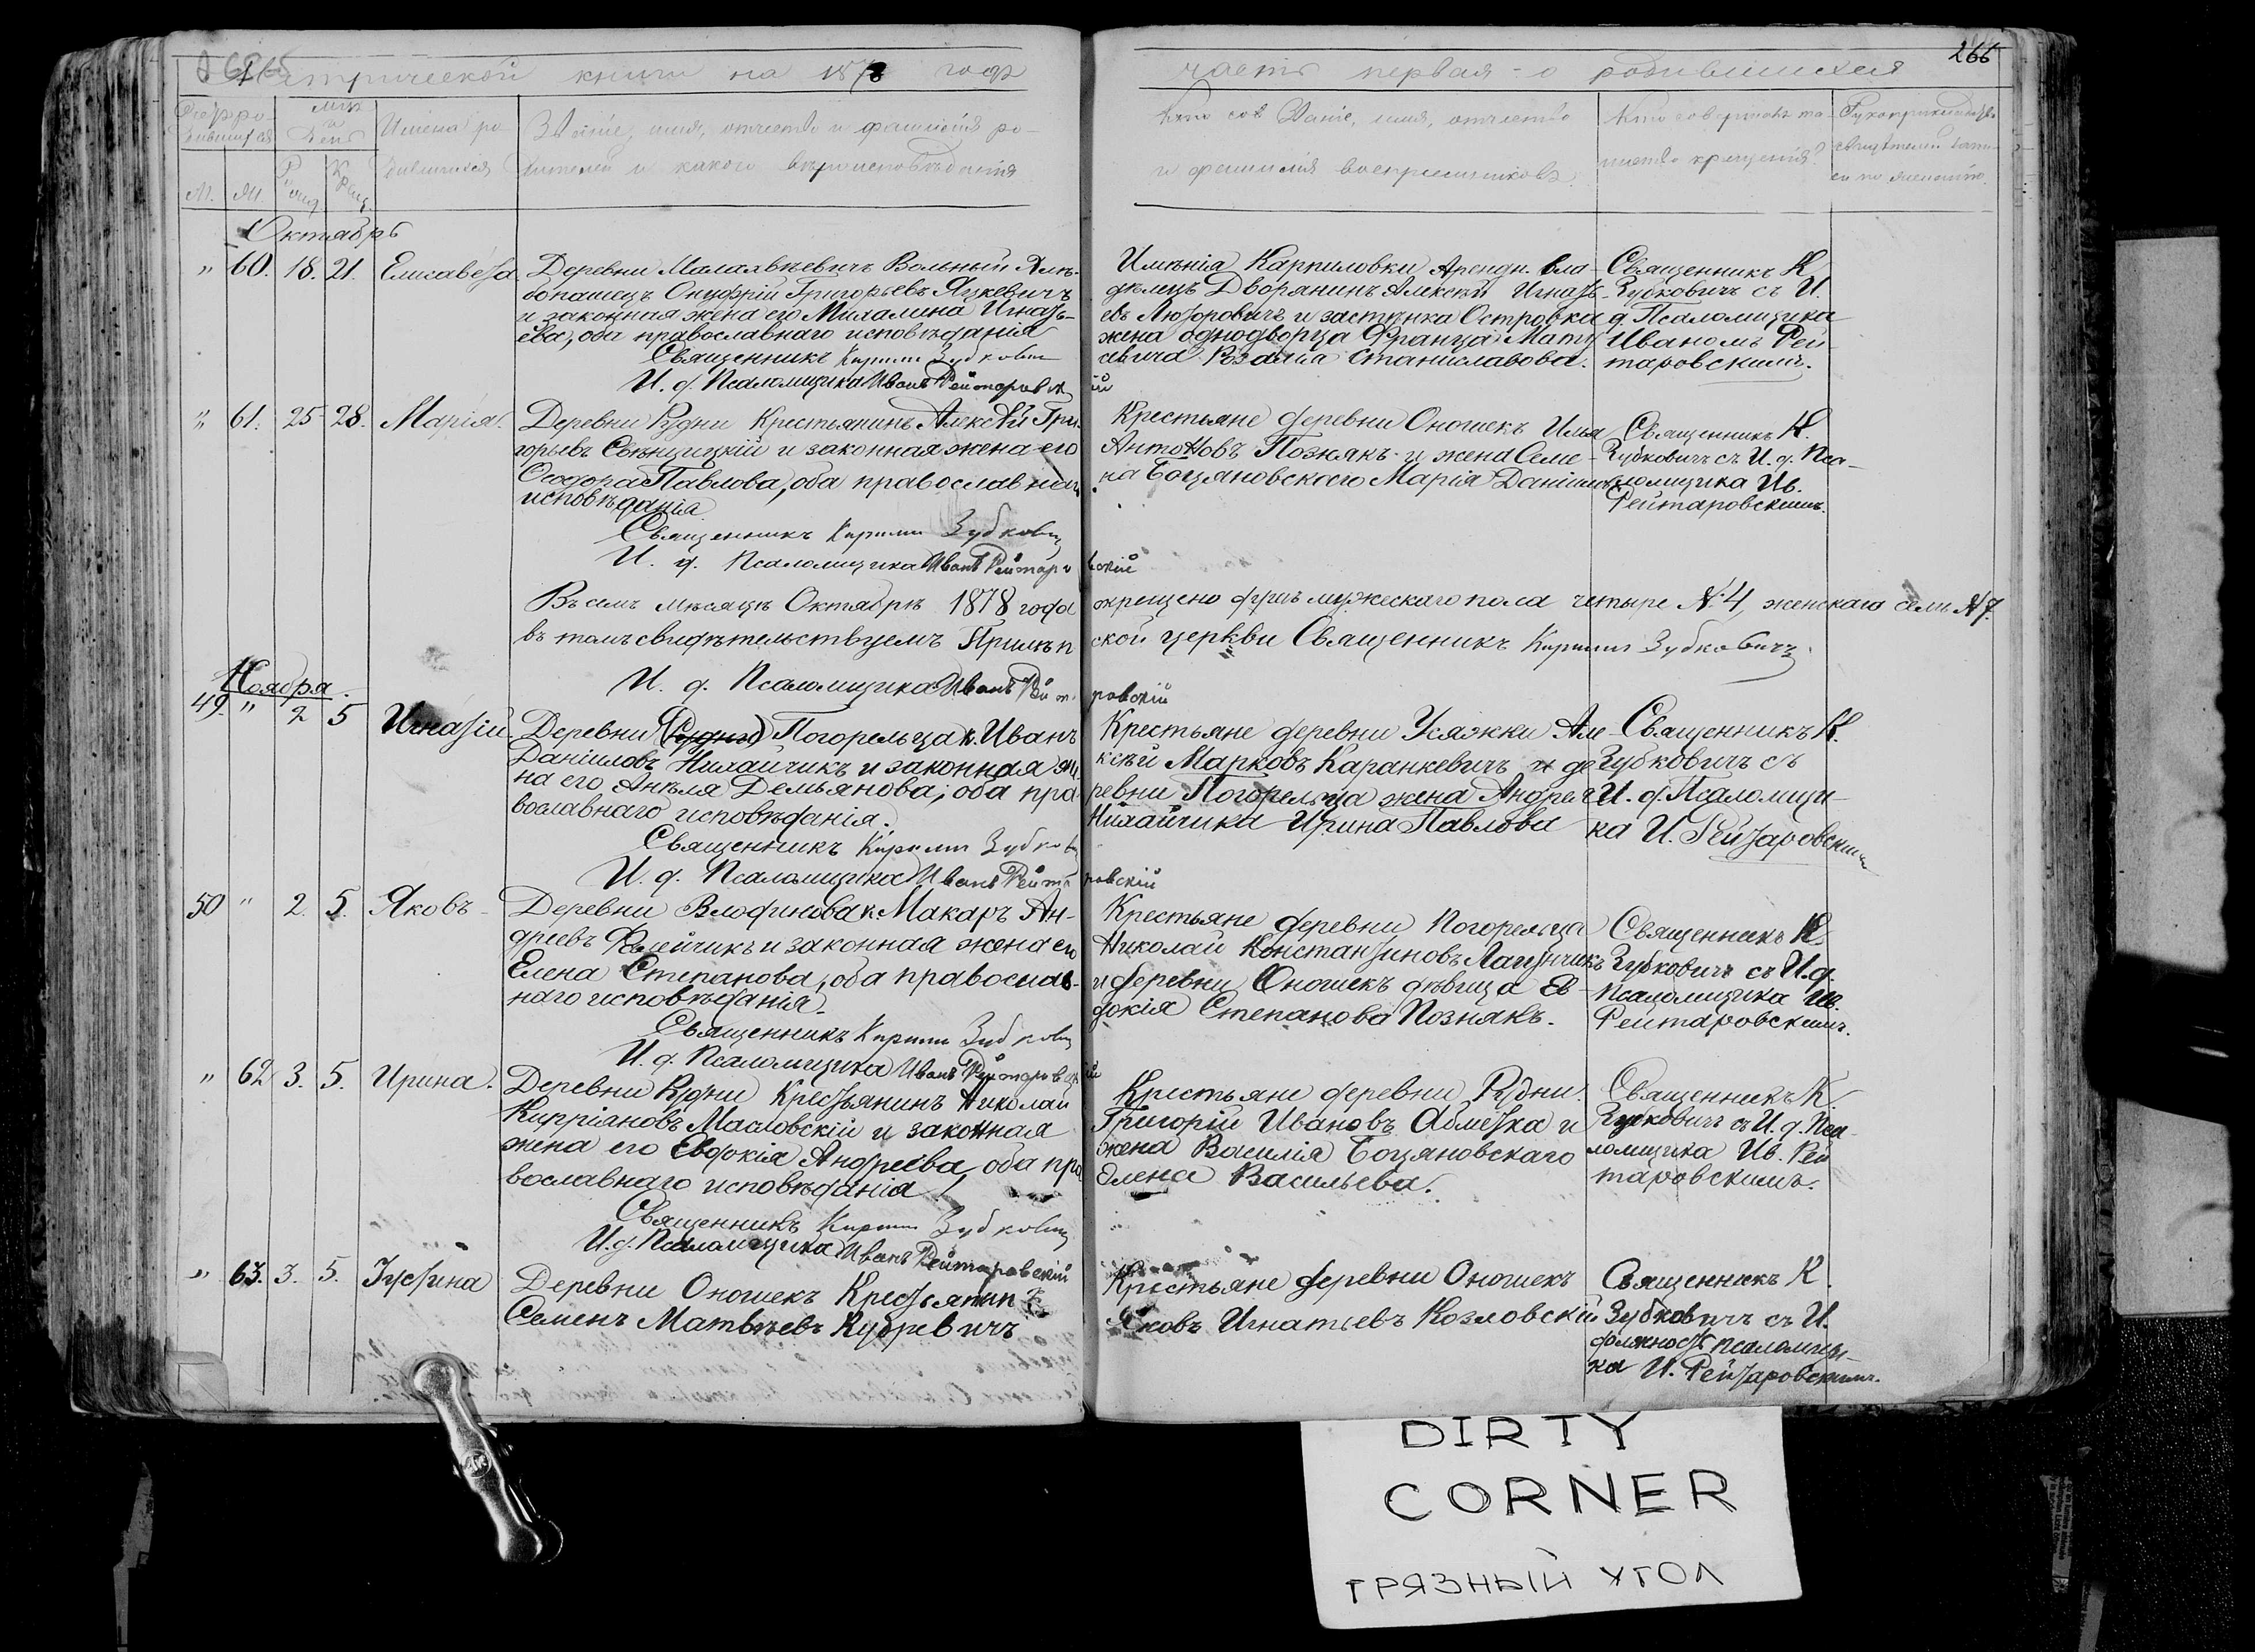 Метрической книги на 1878 годъ
часть первая - о родившихся
266
Имена ро-
дившихся
Званіе, имя, отчество и фамилія ро-
дителей и какого вѣроисповѣданія
Званіе, имя, отчество
и фамилія воспріемниковъ.
Кто совершалъ та-
инство крещенія?
М. Ж.
Октябрь
" 60. 18. 21. Елисавета
Деревни Вольный
Онуфрій Григорьевъ Яцкевичъ
и законная жена его Михалина Игнать-
ева, оба православнаго исповѣданія
Священникъ Кириллъ Зубковичъ
И. д. Псаломщика Иванъ Рейтаровскій
Имѣнія Карпиловки Арендн. вла-
дѣлецъ Дворянинъ Алексѣй Игнать-
евъ и застѣнка Островки
жена однодворца Франца Мат
евича Розалія Станиславова.
Священникъ К
Зубковичъ съ И.
д. Псаломщика
Иваномъ Рей
таровскимъ.
" 61. 25 28. Марія.
Деревни Рудни Крестьянинъ Алексѣй Гри-
горьевъ и законная жена его
Ѳеодора Павлова, оба православнаго
исповѣданія
Священникъ Кириллъ Зубковичъ
И. д. Псаломщика Иванъ Рейтаровскій
Крестьяне деревни Оношекъ Илья
Антоновъ Познякъ и жена Семе-
на Боцяновскаго Марія
Священникъ К.
Зубковичъ съ И. д. Пса-
ломщика Ив.
Рейтаровскимъ.
Въ семъ мѣсяцѣ Октябрѣ 1878 года окрещено мужескаго пола четыре №. 4, женскаго семь № 7.
въ томъ свидѣтельствуемъ ской церкви Священникъ Кириллъ Зубковичъ
И. д. Псаломщика Иванъ Рейтаровскій
Ноября.
49. " 2 5 Игнатій.
Деревни (Рудни) Погорельца к. Иванъ
Даніиловъ Нихайчикъ и законная же-
на его Анѣля Демьянова, оба пра-
вославнаго исповѣданія.
Священникъ Кириллъ Зубковичъ
И. д. Псаломщика Иванъ Рейтаровскій
Крестьяне деревни Усяжки Але-
ксѣй Марковъ Каранкевичъ и де
ревни Погорельца жена Андрея
Нихайчика Ирина Павлова
Священникъ К.
Зубковичъ съ
И. д. Псаломщи-
ка И. Рейтаровскимъ
50 " 2. 5. Яковъ
Деревни к. Макаръ Ан-
дреевъ и законная жена его
Елена Степанова, оба православ-
наго исповѣданія.
Священникъ Кириллъ Зубковичъ
И. д. Псаломщика Иванъ Рейтаровскій
Крестьяне деревни Погорельца
Николай Константиновъ
и деревни Оношекъ дѣвица Ев-
докія Степанова Познякъ.
Священникъ К.
Зубковичъ съ И. д.
Псаломщика Ив.
Рейтаровскимъ.
" 62 3. 5. Ирина.
Деревни Рудни Крестьянинъ Николай
Кипріяновъ Масловскій и законная
жена его Евдокія Андреева, оба пра
вославнаго исповѣданія
Священникъ Кириллъ Зубковичъ
И. д. Псаломщика Иванъ Рейтаровскій
Крестьяне деревни Рудни
Григорій Ивановъ Абметка и
жена Василія Боцяновскаго
Елена Васильева.
Священникъ К.
Зубковичъ съ И. д. Пса-
ломщика Ив. Рей
таровскимъ.
" 63. 3. 5. Іустина
Деревни Оношекъ Крестьянинъ
Семенъ Матвѣевъ Кудревичъ
Крестьяне деревни Оношекъ
Яковъ Игнатьевъ Козловскій
Священникъ К.
Зубковичъ съ И.
должность псаломщи-
ка И. Рейтаровскимъ.
DIRTY
CORNER
ГРЯЗНЫЙ УГОЛ